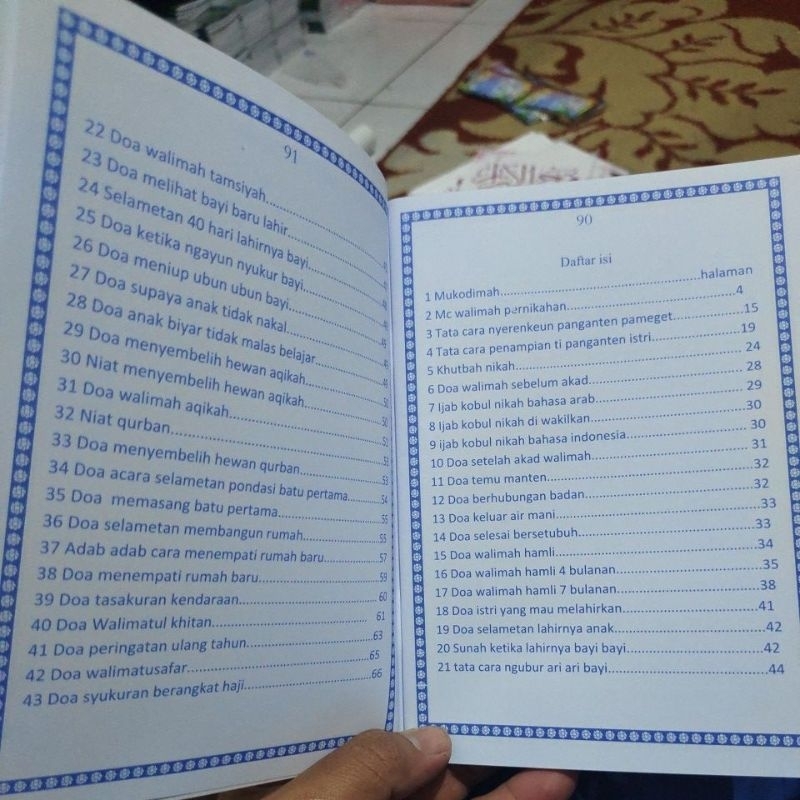 90
Daftar isi
1 Mukodimah.......halaman
2 Mc walimah pernikahan.......4
3 Tata cara nyerenkeun panganten pameget.......15
4 Tata cara penampian ti panganten istri.......19
5 Khutbah nikah....... 24
6 Doa walimah sebelum akad....... 28
7 Ijab kobul nikah bahasa arab....... 29
8 Ijab kobul nikah di wakilkan.......30
9 ijab kobul nikah bahasa indonesia....... 30
10 Doa setelah akad walimah....... 31
11 Doa temu manten....... 32
12 Doa berhubungan badan....... 32
13 Doa keluar air mani.......33
14 Doa selesai bersetubuh.......33
15 Doa walimah hamli.......34
16 Doa walimah hamli 4 bulanan.......35
17 Doa walimah hamli 7 bulanan.......38
18 Doa istri yang mau melahirkan.......41
19 Doa selametan lahirnya anak.......42
20 Sunah ketika lahirnya bayi bayi.......42
21 tata cara ngubur ari ari bayi.......44
91
22 Doa walimah tamsiyah.......
23 Doa melihat bayi baru lahir.......
24 Selametan 40 hari lahirnya bayi.......
25 Doa ketika ngayun nyukur bayi.......
26 Doa meniup ubun ubun bayi.......
27 Doa supaya anak tidak nakal.......
28 Doa anak biyar tidak malas belajar.......
29 Doa menyembelih hewan aqikah.......
30 Niat menyembelih hewan aqikah.......
31 Doa walimah aqikah.......
32 Niat qurban.......
33 Doa menyembelih hewan qurban.......53
34 Doa acara selametan pondasi batu pertama.......54
35 Doa memasang batu pertama.......55
36 Doa selametan membangun rumah.......55
37 Adab adab cara menempati rumah baru.......57
38 Doa menempati rumah baru.......59
39 Doa tasakuran kendaraan....... 60
40 Doa Walimatul khitan....... 61
41 Doa peringatan ulang tahun.......63
42 Doa walimatusafar.......65
43 Doa syukuran berangkat haji.......66